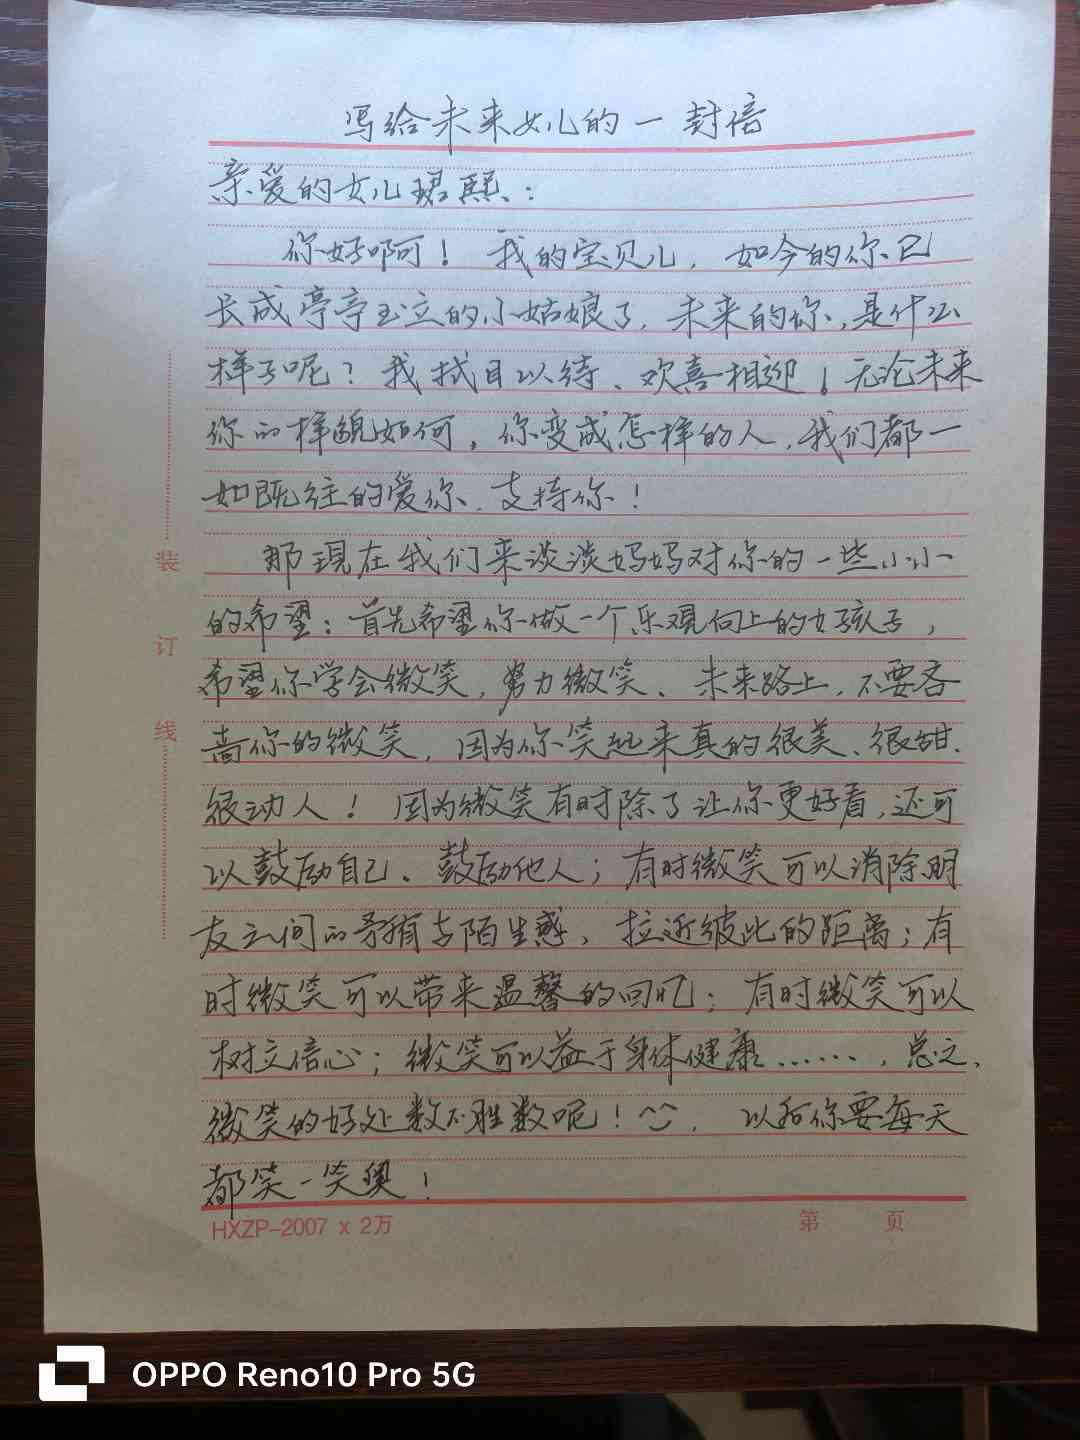 写给未来女儿的一封信
亲爱的女儿珺熙:
你好啊!我的宝贝儿,如今的你已
长成亭亭玉立的小姑娘了,未来的你,是什么
样子呢?我拭目以待、欢喜相迎!无论未来
你的样貌如何,你变成怎样的人,我们都一
如既往的爱你、支持你!
那现在我们来谈谈妈妈对你的一些小小
的希望:首先希望你做一个乐观向上的女孩子,
希望你学会微笑,努力微笑、未来路上,不要吝
啬你的微笑,因为你笑起来真的很美、很甜、
很动人!因为微笑有时除了让你更好看,还可
以鼓励自己、鼓励他人;有时微笑可以消除朋
友之间的矛盾与陌生感、拉近彼此的距离;有
时微笑可以带来温馨的回忆;有时微笑可以
树立信心;微笑可以益于身体健康……,总之、
微笑的好处数不胜数呢!^‿^,以后你要每天
都笑一笑奥!
装
订
线
HXZP-2007 x 2万
第 页
OPPO Reno10 Pro 5G